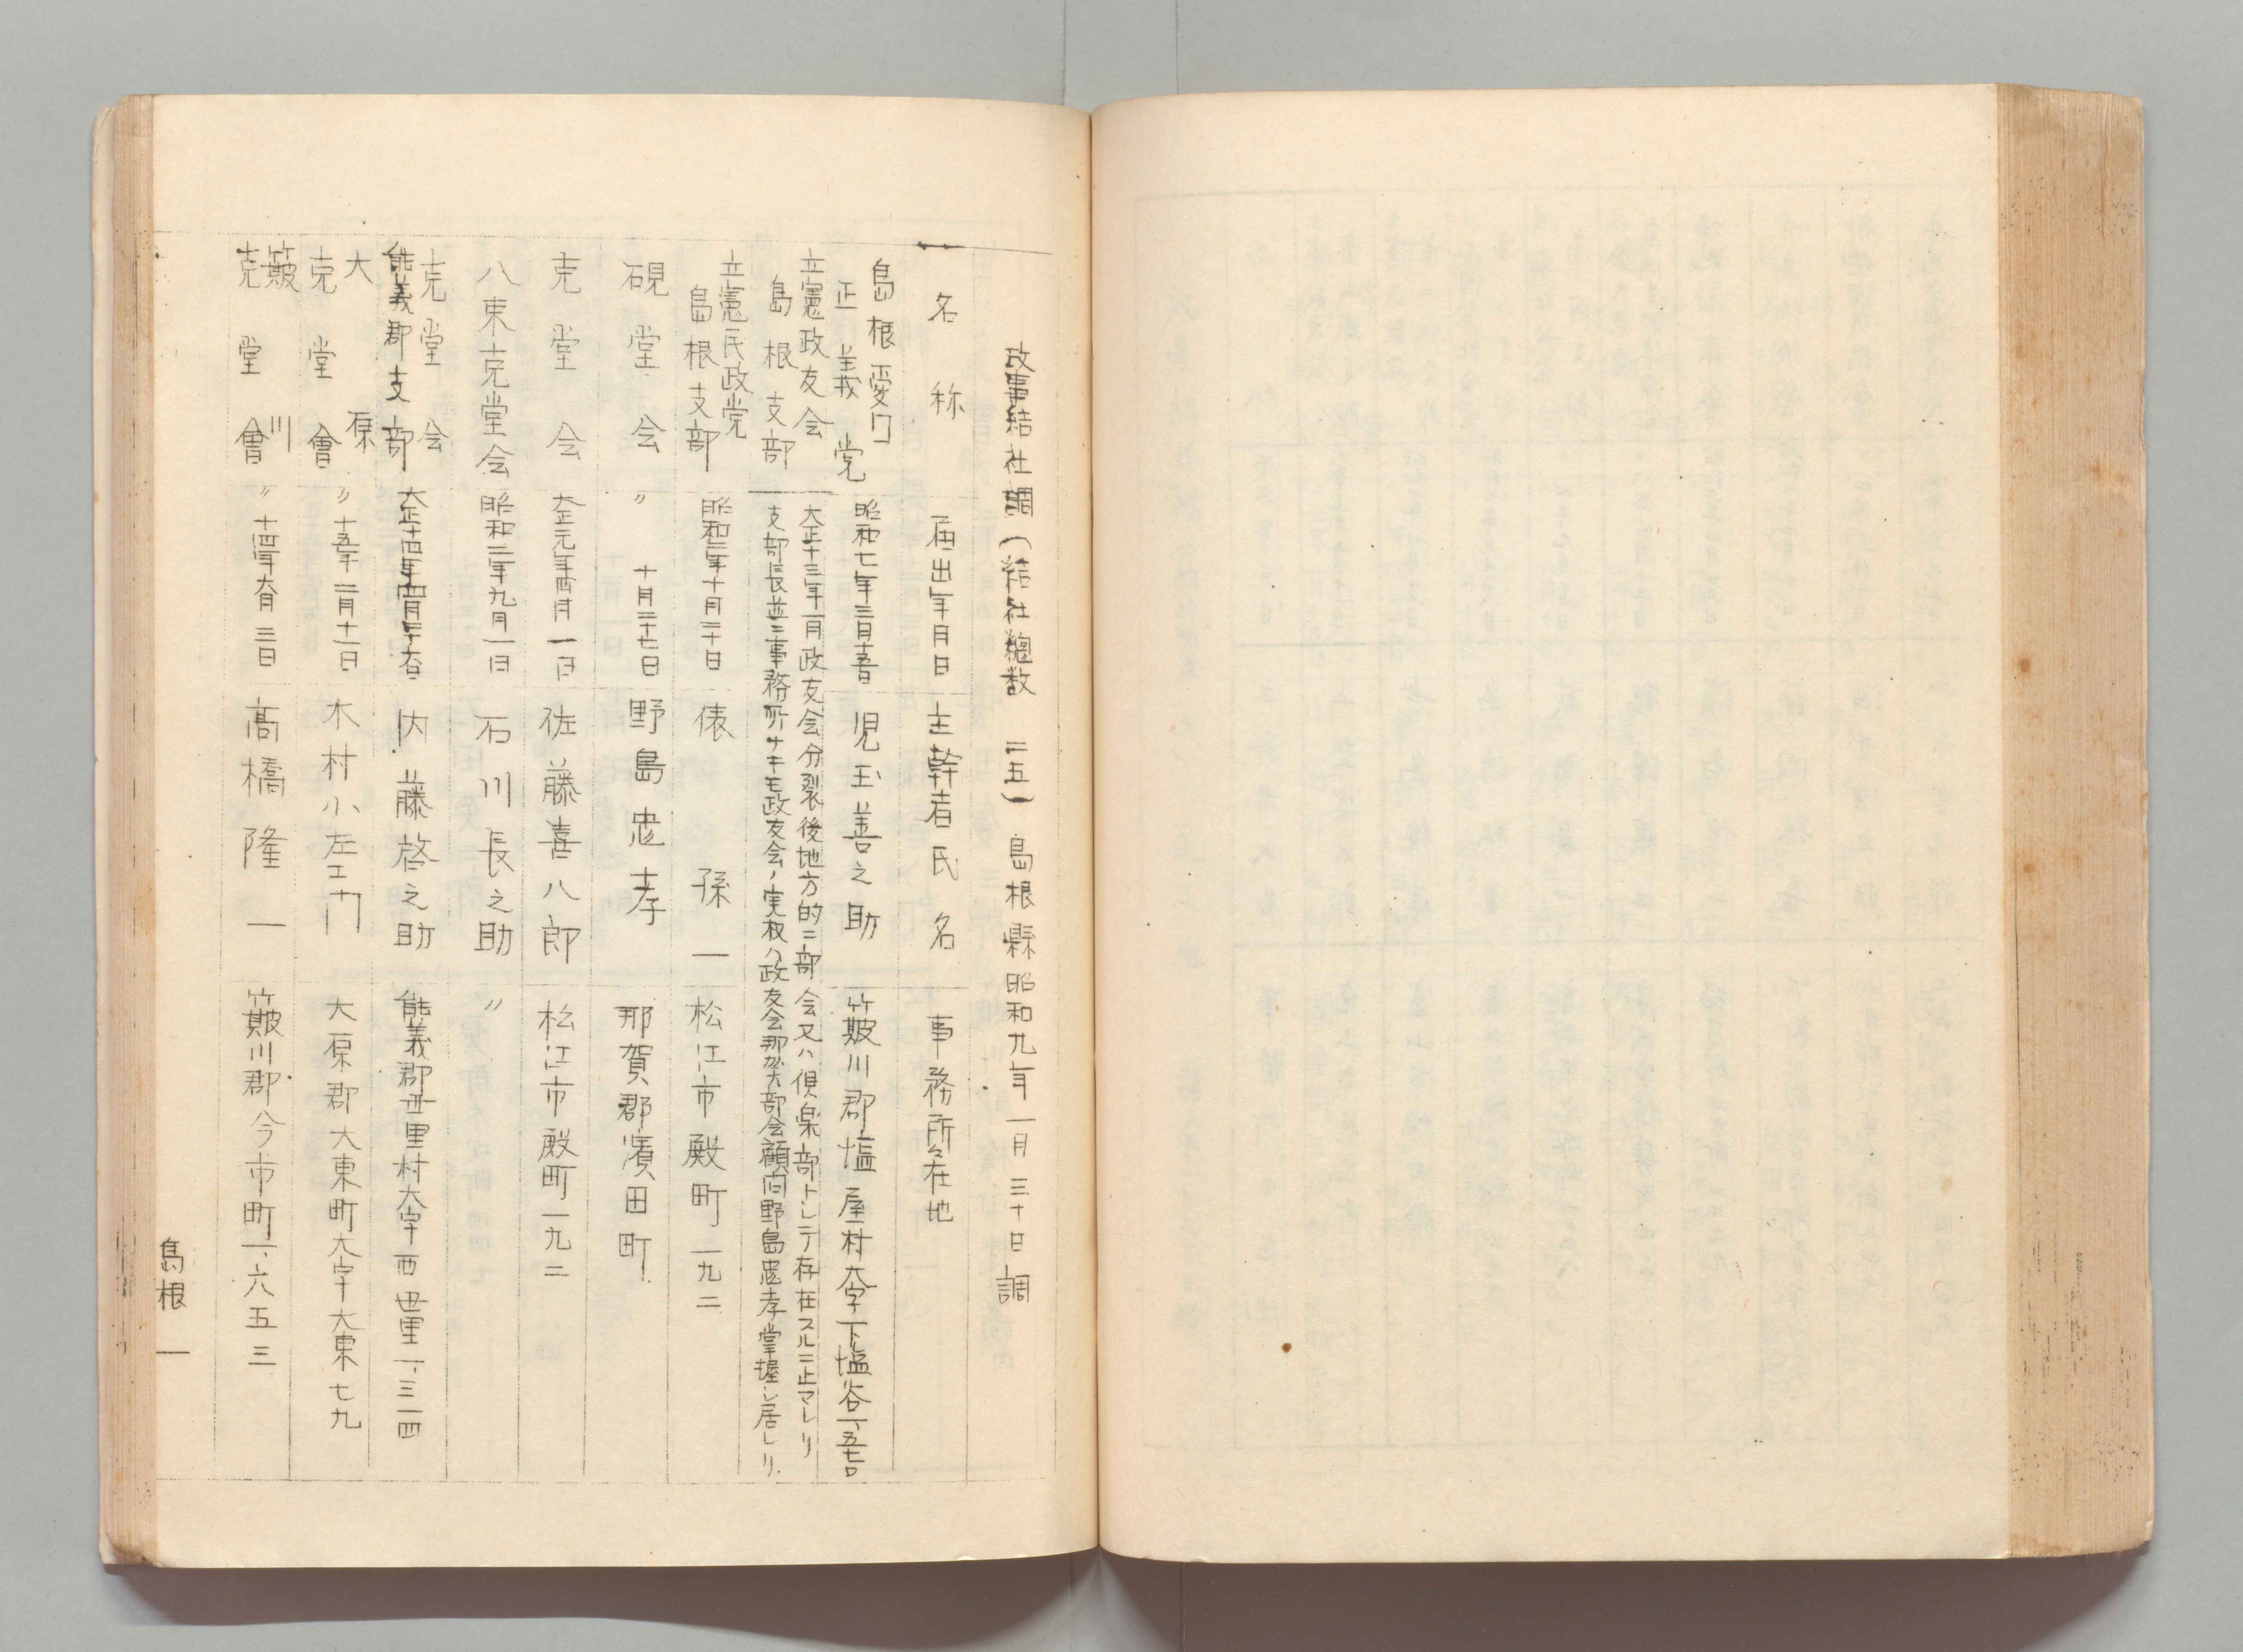 政事結社調(結社總数 二五) 島根縣 昭和九年一月三十日調
名称 届出年月日 主幹者氏名 事務所在地
島根愛国
正義党 昭和七年三月 児玉善之助 簸川郡塩屋村大字下塩谷
立憲政友会
島根支部
大正十三年一月政友会分裂後地方的ニ部会又ハ倶楽部トシテ存在スルニ止マレリ
支部長並ニ事務所ナキモ政友会ノ実权ハ政友会那賀部会顧問野島忠孝掌握シ居レリ
立憲民政党
島根支部 昭和三年十月二十日 俵孫一 松江市殿町一九二
硯堂会 〃 十月二十七日 野島忠孝 那賀郡濱田町
克堂会 大正元年四月一日 佐藤喜八郎 松江市殿町一九二
八束克堂会 昭和二年九月一日 石川長之助 〃
克堂会
能義郡支部 大正十四年四月 内藤啓之助 能義郡井里村大字西 一、三一四
大原
克堂會 〃十五年二月十一日 木村小左エ門 大原郡大東町大字大東七九
簸川
克堂會 〃十四年六月三日 高橋隆一 簸川郡今市町一、六五三
島根 一